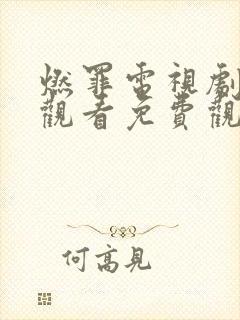 燃罪電視劇
觀看免費觀
何高見